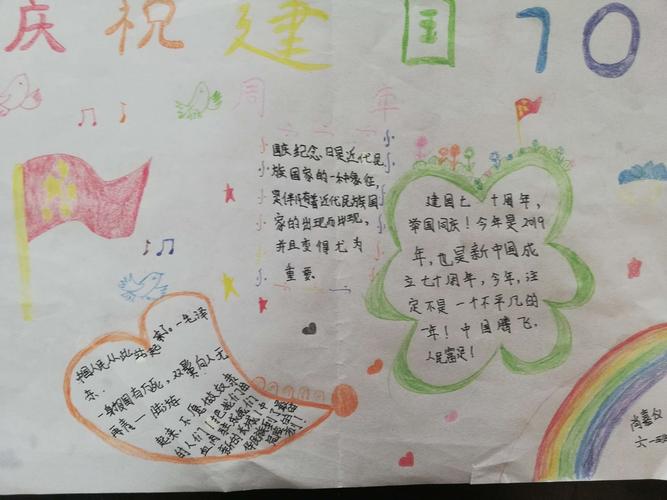 庆祝建国70
周年
国庆纪念日是近代民
族国家的一种象征,
是伴随着近代民族国
家的出现而出现,
并且变得尤为
重要
建国七十周年,
举国同庆!今年是2019
年,也是新中国成
立七十周年,今年,注
定不是一个不平凡的
一年!中国腾飞,
人民富足!
中国人民从此站起来了。一毛泽
东.
再青一
起来,不愿做奴隶
的人们!把我们的
血肉筑成我们
新的长城!中
六一班